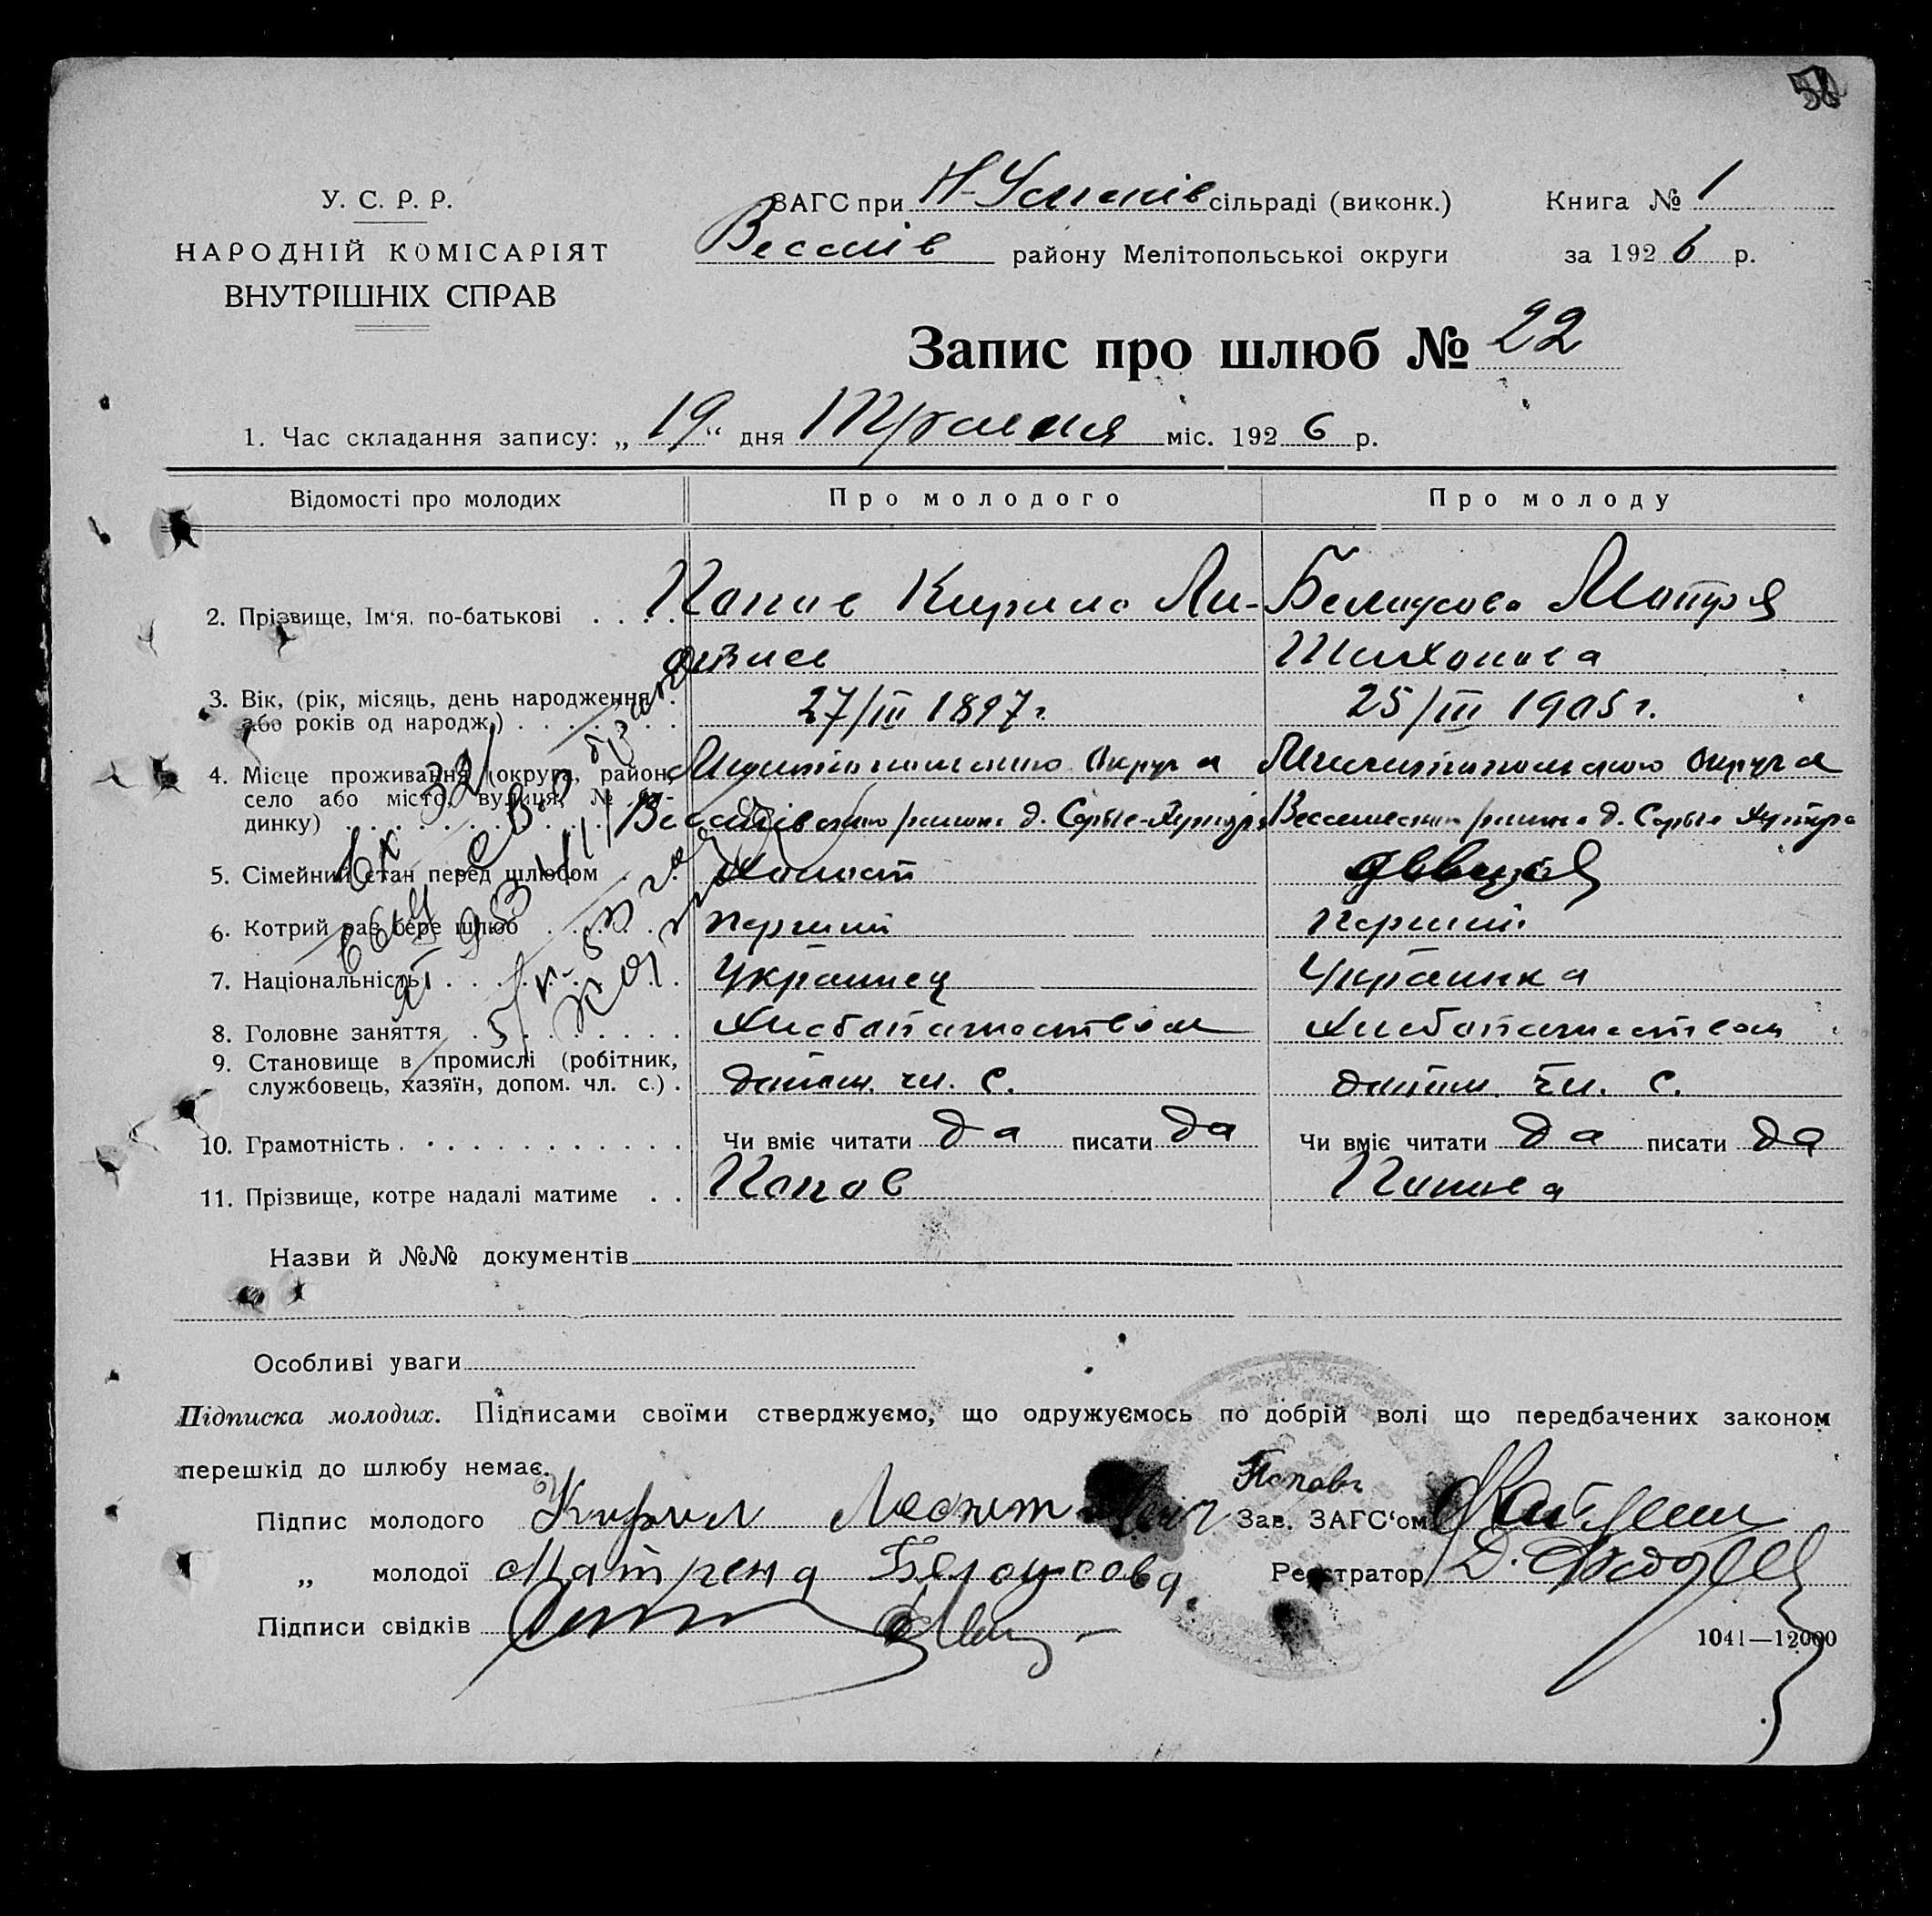 У. С. Р. Р.
НАРОДНІЙ КОМІСАРІЯТ
ВНУТРІШНІХ СПРАВ
ЗАГС при Н-Успенів сільраді (виконк.)
Веселів району Мелітопольської округи
Книга № 1
за 1926 р.
Запис про шлюб № 22
1. Час складання запису: „19“ дня Травня міс. 1926 р.
Відомості про молодих Про молодого Про молоду
2. Прізвище, Ім'я, по-батькові . . . . Попов Кирило Ле- Белаусова Мотря
Тихонова
3. Вік, (рік, місяць, день народження або років од народж.) . . . . . . . 27/III 1897 г. 25/III 1905 г.
4. Місце проживання (округа, район, село або місто, вулиця, № будинку)
Округа
Округа
района д. Серые-Хутора
района д. Серые Хутора
5. Сімейний стан перед шлюбом . . Холост
6. Котрий раз бере шлюб . . . . . перший перший
7. Національність . . . . . . . . Украинец Украинка
8. Головне заняття . . . . . . . . Хлебопашеством Хлебопашеством
9. Становище в промислі (робітник, службовець, хазяїн, допом. чл. с.) . допом. чл. с. допом. чл. с.
10. Грамотність . . . . . . . . . . . . Чи вміє читати да писати да Чи вміє читати да писати да
11. Прізвище, котре надалі матиме . . Попов Попова
Назви й №№ документів
Особливі уваги
Підписка молодих. Підписами своїми стверджуємо, що одружуємось по добрій волі що передбачених законом
перешкід до шлюбу немає.
Поповъ
Підпис молодого Кирил
Зав. ЗАГС'ом
„ молодої Матрена Белоусова.
Реєстратор
Підписи свідків
1041—12000